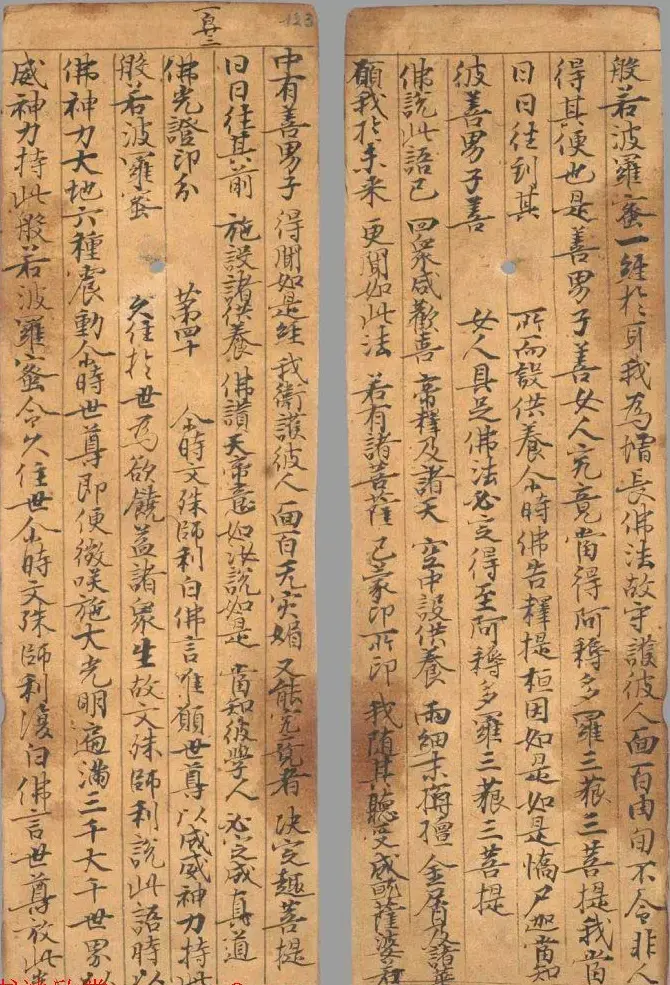 般若波羅蜜一經於耳我為增長佛法故守護彼人面百由旬不令非人
得其便也是善男子善女人究竟當得阿耨多羅三藐三菩提我當
日日往到其 所而設供養尒時佛告釋提桓因如是如是憍尸迦當知
彼善男子善 女人具足佛法必定得至阿耨多羅三藐三菩提
佛說此語已 四眾咸歡喜 帝釋及諸天 空中設供養 雨細末栴檀 金屑及諸華
願我於未来 更聞如此法 若有諸菩薩 已蒙印所印 我随其聽受 咸 薩婆若
123
中有善男子 得聞如是經 我衛護彼人 面百无灾媚 又能究竟者 決定趣菩提
日日往其前 施設諸供養 佛讚天帝意 如汝說如是 當知彼學人 必定成真道
佛光證印分 第四十 尒時文殊師利白佛言唯願世尊以威威神力持此
般若波羅蜜 久住於世為欲饒益諸眾生故文殊師利說此語時以
佛神力大地六種震動尒時世尊即便微咲施大光明遍滿三千大千世界以
威神力持此般若波羅蜜令久住世尒時文殊師利復白佛言世尊放此